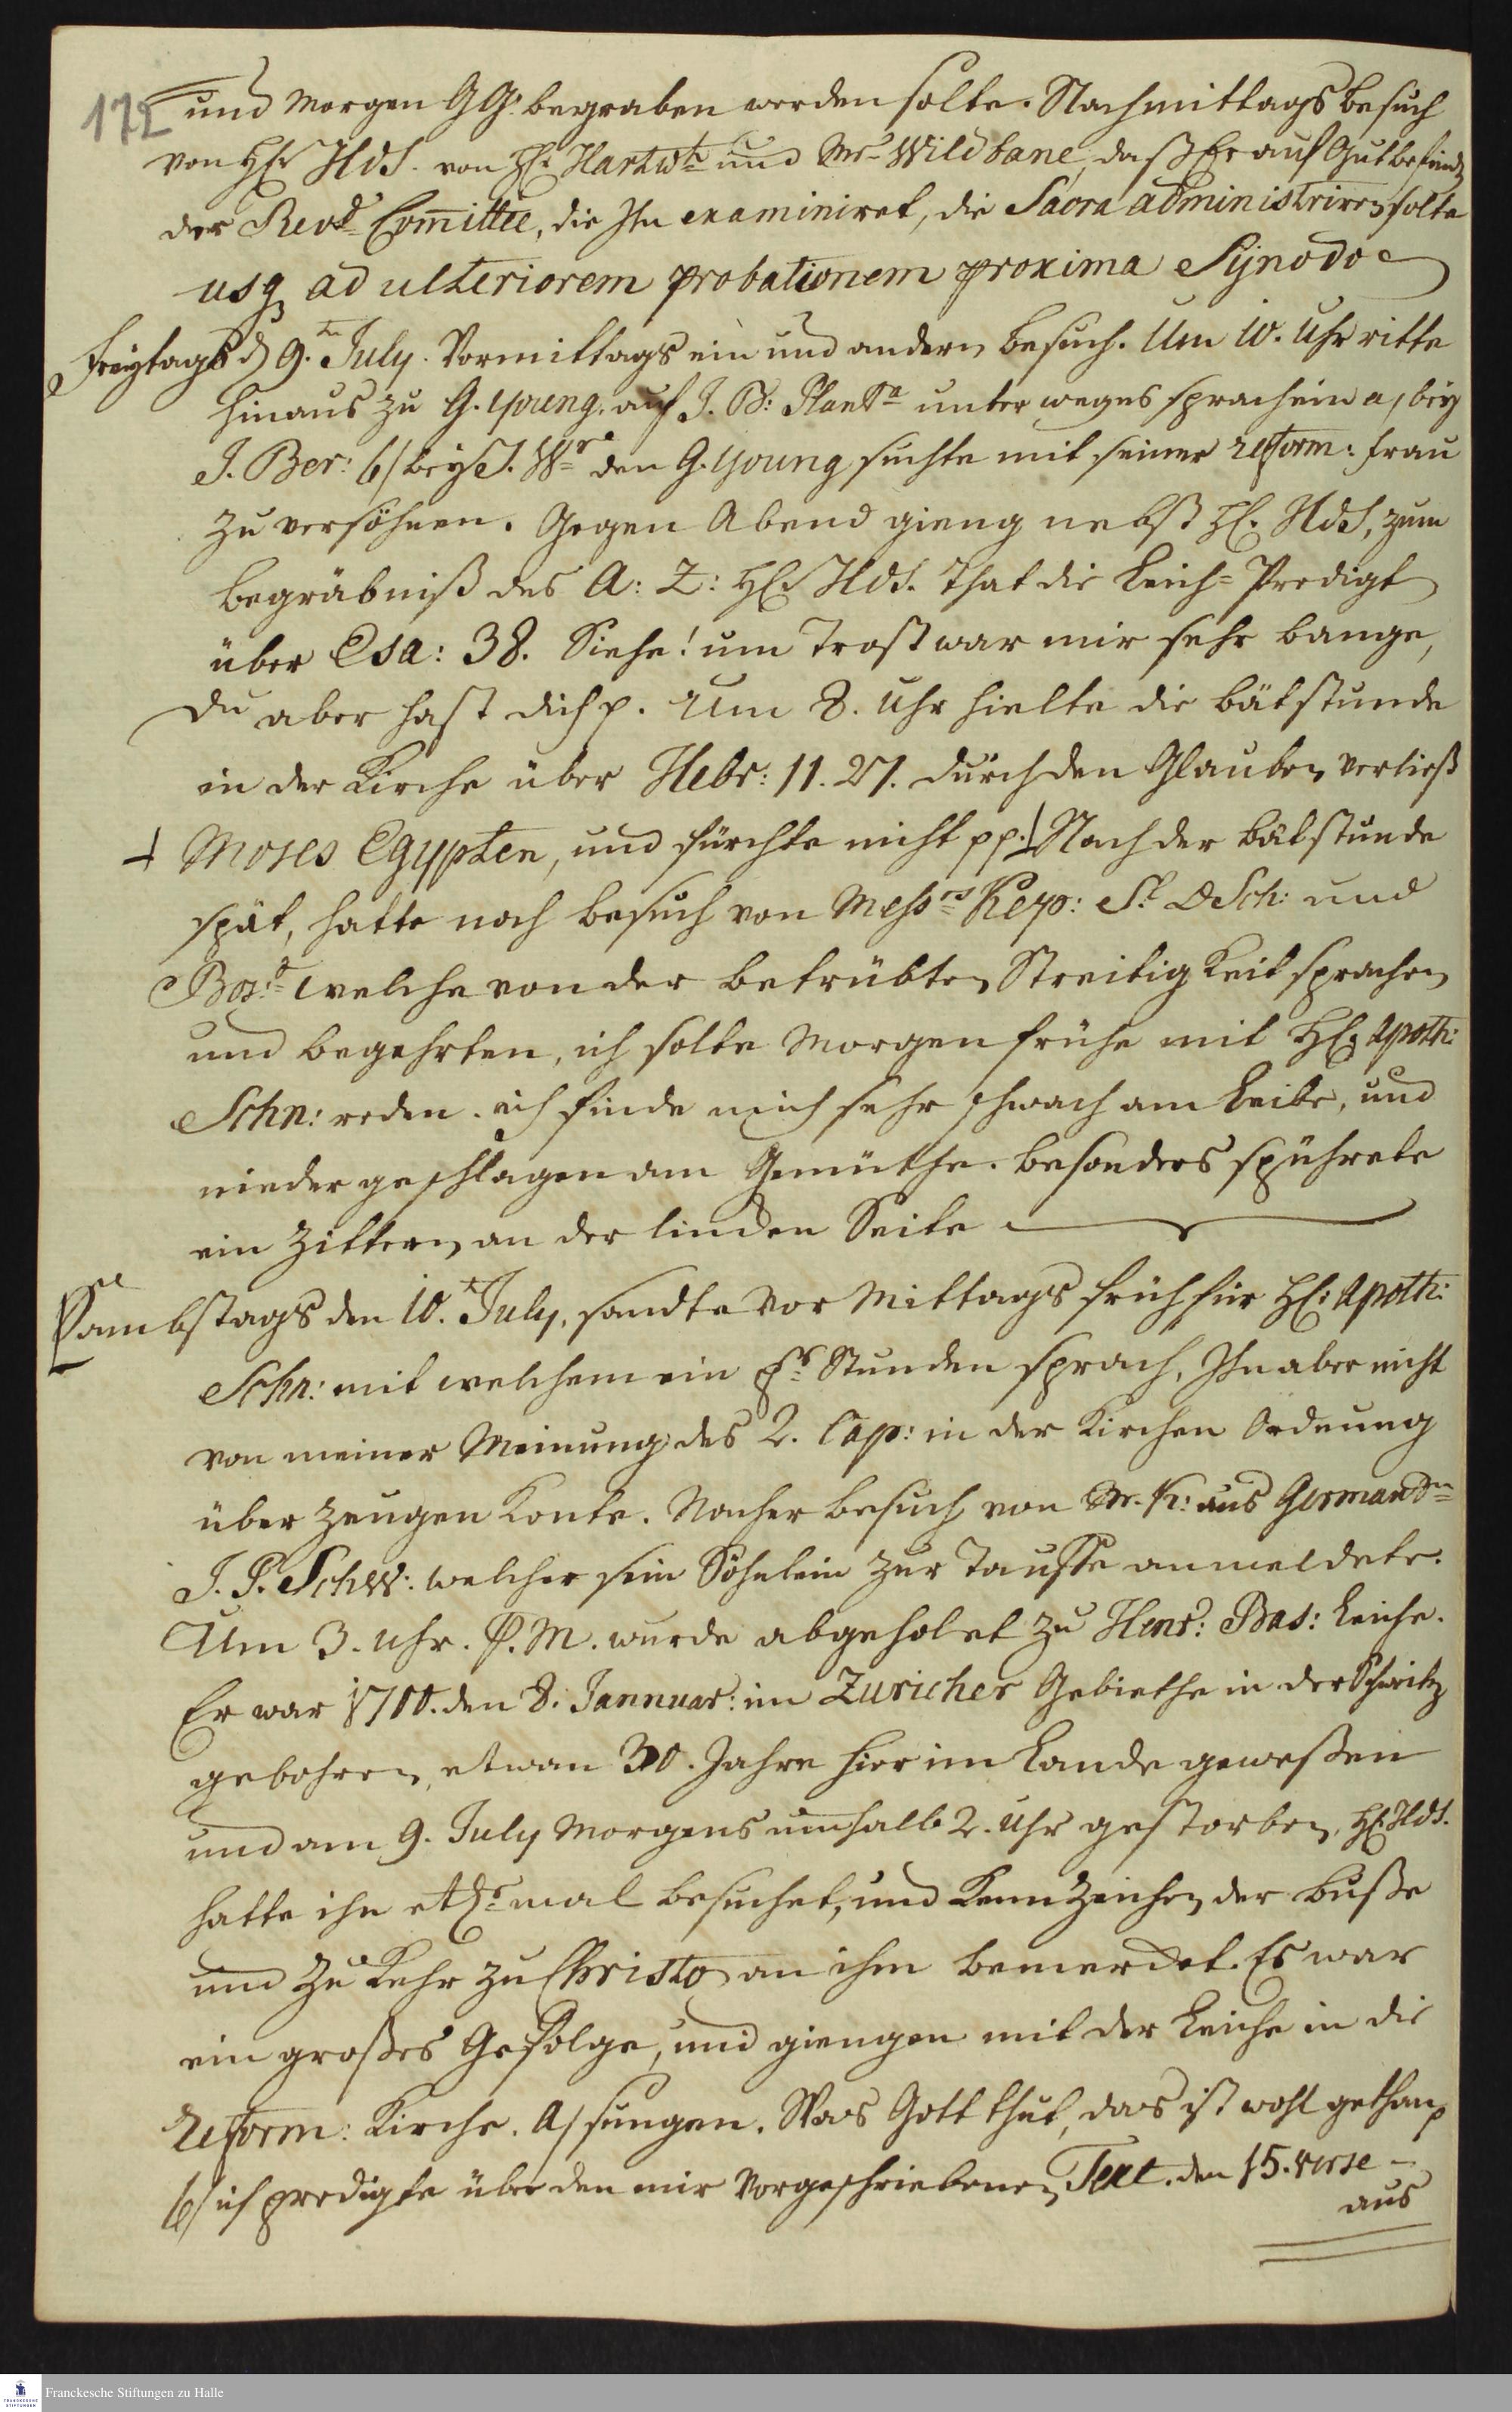 172
und Morgen GG. begraben werden solte. Nachmittags Besuch
von H. Hds. von H. Hartw: und Mr. Wildbane, daß Er auf Gutbefinden
der Revd. Comittee, die Ihn examiniret, die Sacra administriren solte
usq ad ulteriorem probationem proxima Synodo
Freytags d 9. July. Vormittags ein und andern Besuch. Um 10. Uhr ritte
hinaus zu G. Young, auf J. B: Plant. unterweges sprach ein a, bey
J. Ber: b/ bey J. Wr. den G. Young suchte mit seiner reform: Frau
zu versöhnen. Gegen Abend gieng nebst H. Hds. zum
Begräbniß des A: Z: H. Hds. that die Leich-Predigt
über Esa: 38. Siehe! um Trost war mir sehr bange,
du aber hast dich p. Um 8. Uhr hielte die Bätstunde
in der Kirche über Hebr: 11. 27. durch den Glauben verließ
Moses Egypten, und fürchte nicht pp. Nach der Bätstunde
spät, hatte noch Besuch von Messrs Kepp: Sch: und
welche von der betrübten Streitigkeit sprachen
und begehrten, ich solte Morgen frühe mit H. Apoth:
Schn: reden. ich finde mich sehr schwach am Leibe, und
niedergeschlagen am Gemüthe. besonders spührete
ein Zittern an der lincken Seite
Sambstags den 10. July, sandte vor Mittags früh für H: Apoth:
Schn: mit welchem ein Stunden sprach, Ihn aber nicht
von meiner Meinung des 2. Cap: in der Kirchen Ordnung
überzeugen konte. Nacher Besuch von Mr. K: aus Germant.
J. P. Schw: welcher sein Söhnlein zur Tauffe anmeldete.
Um 3. Uhr. P. M. wurde abgeholet zu Henr: Bas: Leiche.
Er war 1710. den 8. Jannuar: im Zuricher Gebiethe in der Schweitz
gebohren, etwan 30. Jahre hier im Lande gewesen
und am 9. July Morgens um halb 2. Uhr gestorben. H. Hds.
hatte ihn etl. mal besuchet, und Kennzeichen der Buße
und Zukehr zu Christo an ihm bemercket. Es war
ein großes Gefolge, und giengen mit der Leiche in die
Reform: Kirche. a/ sungen. Was Gott thut, das ist wohl gethan p
b/ ich predigte über den mir vorgeschriebenen Text. den 15. verse
aus
Franckesche Stiftungen zu Halle